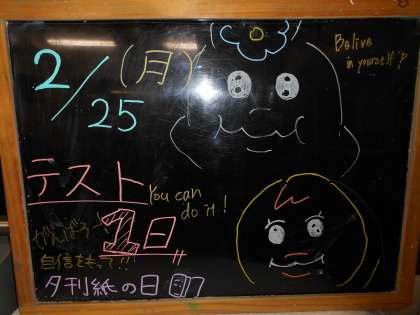 2/25
(月)
Belive
in yourself!?
テスト
You can
do it!
がんばろー!
1日
自信をもって!!
夕刊紙の日